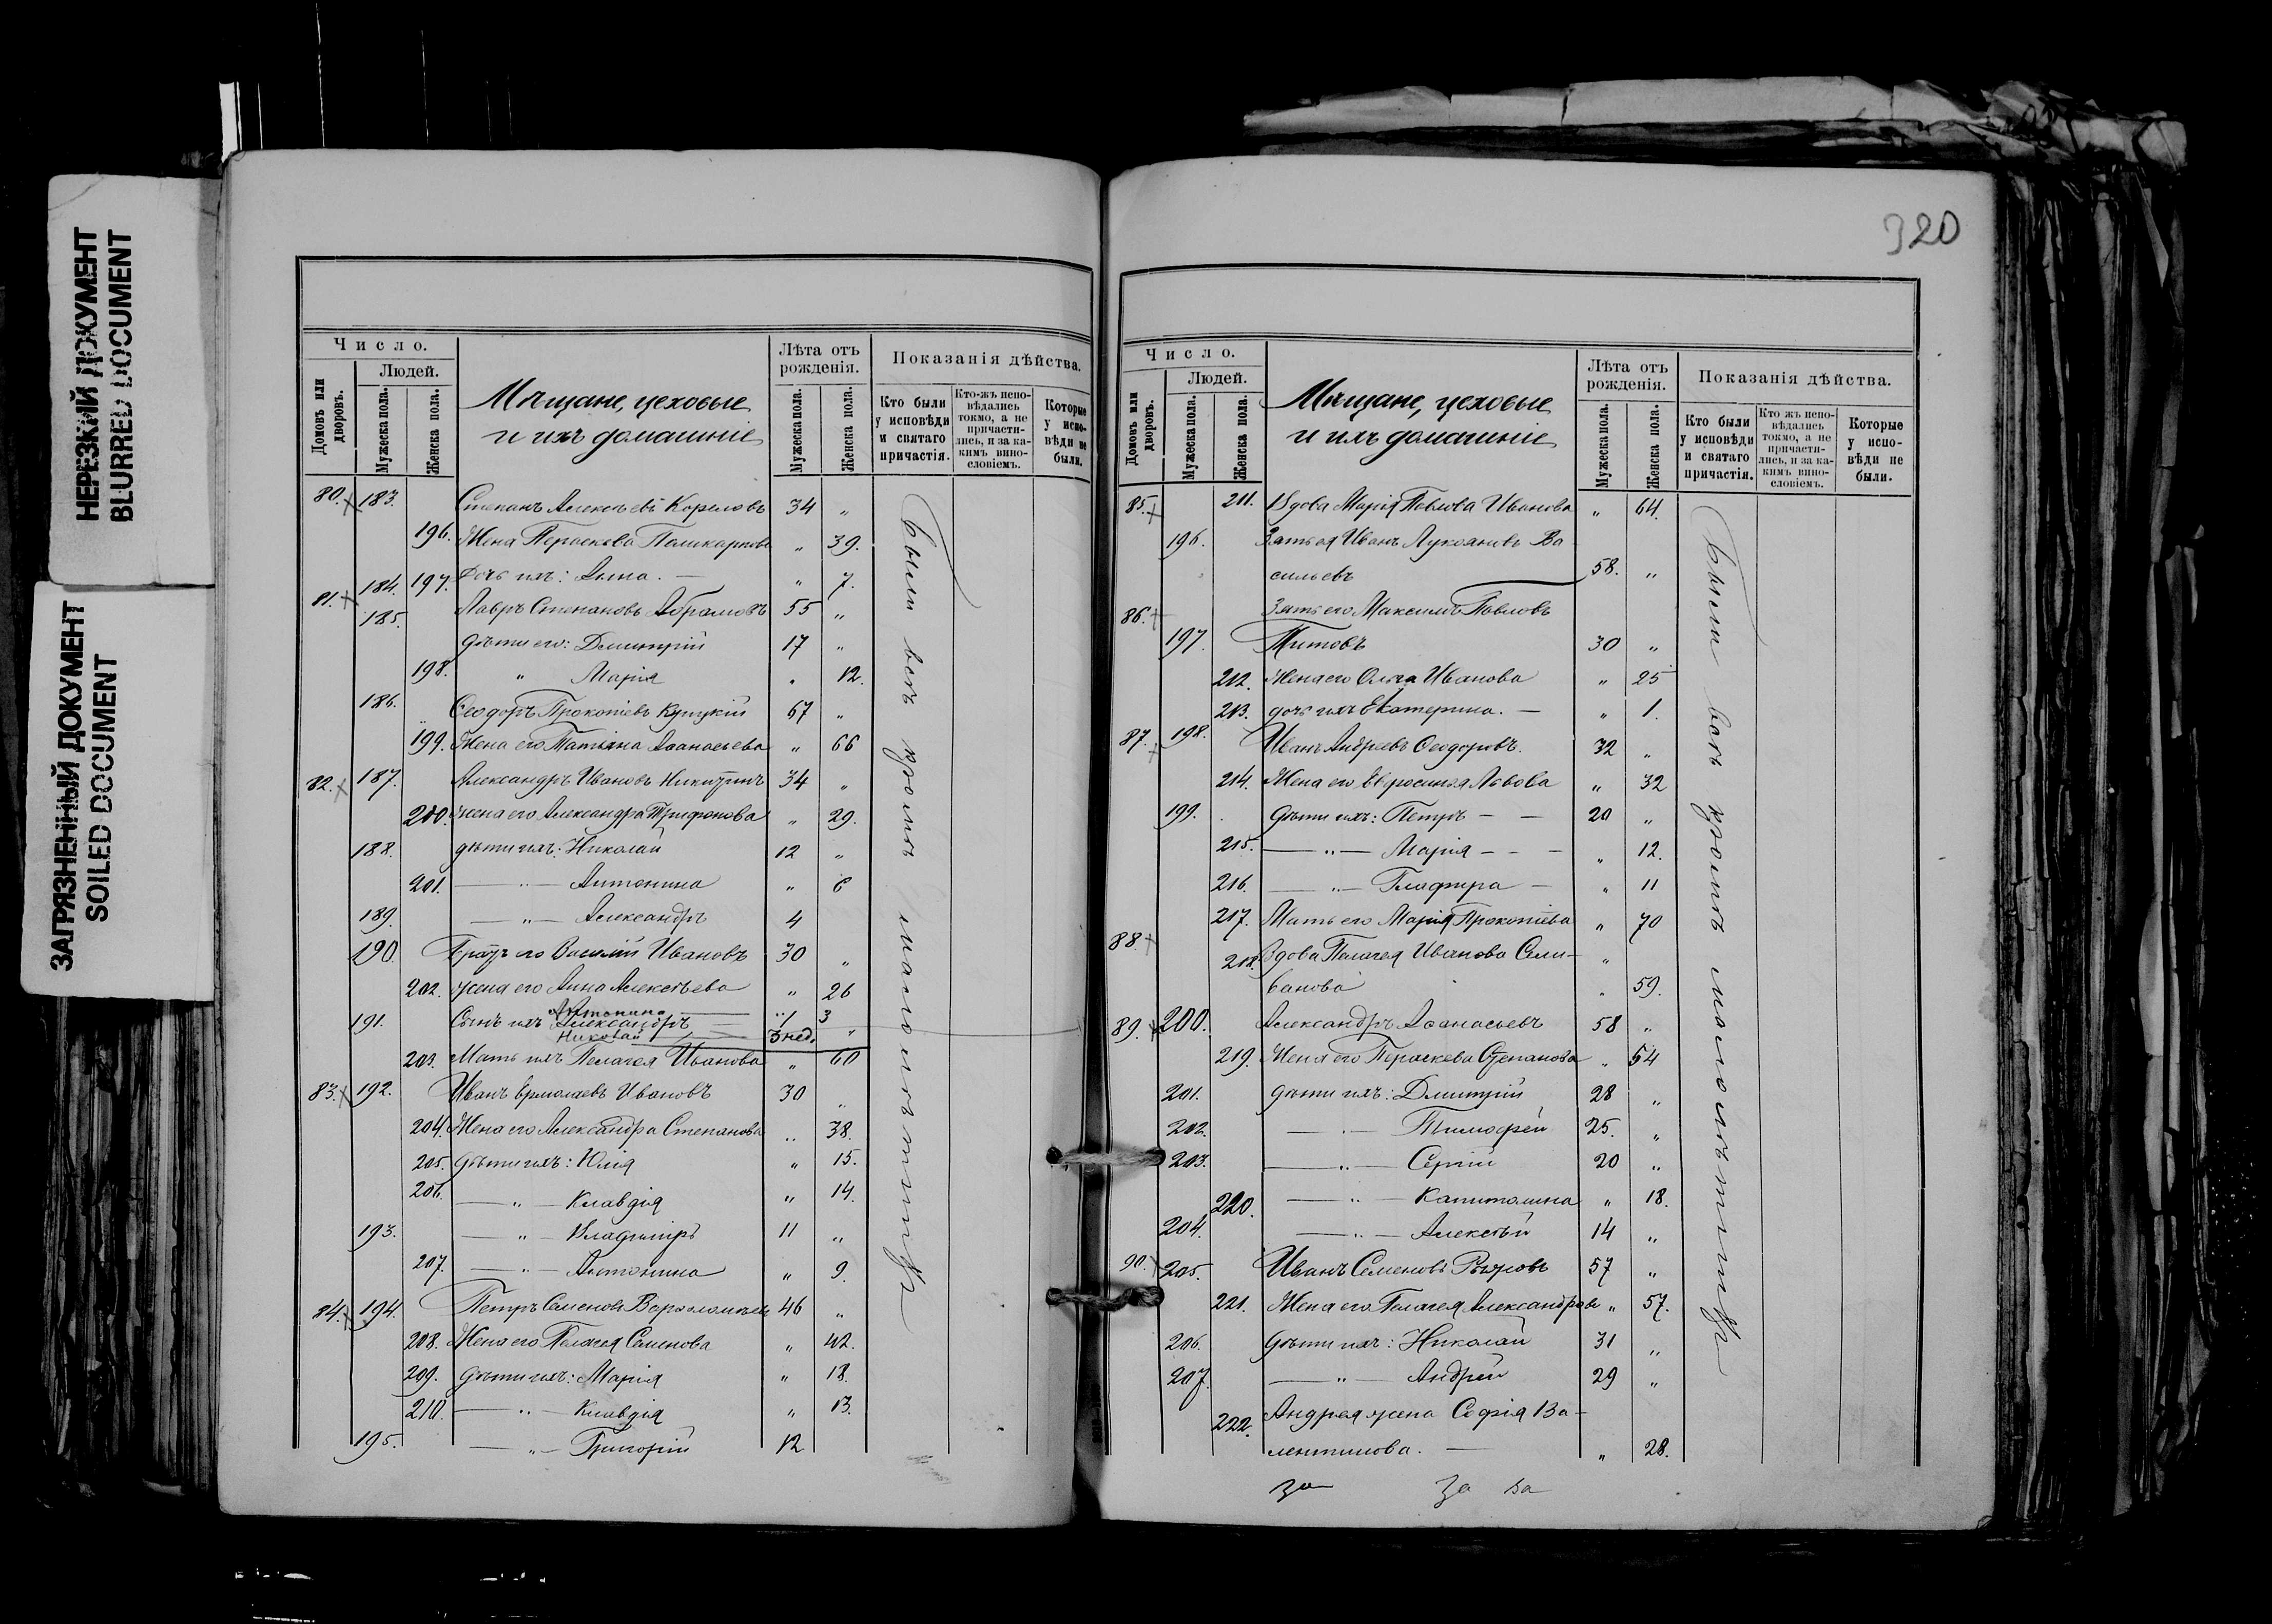 НЕРЕЗКИЙ ДОКУМЕНТ
BLURRED DOCUMENT
ЗАГРЯЗНЕННЫЙ ДОКУМЕНТ
SOILED DOCUMENT
Число.
Людей.
Домовъ или дворовъ.
Мужеска пола.
Женска пола.
Мѣщане, цеховые
и ихъ домашніе
Лѣта отъ рожденія.
Мужеска пола.
Женска пола.
Показанія дѣйства.
Кто были у исповѣди и святаго причастія.
Кто-жъ исповѣдались токмо, а не причастились, и за какимъ винословіемъ.
Которые у исповѣди не были.
80. 183. Степанъ Алексѣевъ Кореловъ 34 "
196. Жена Параскева Поликарпова " 39.
197. Дочь ихъ: Анна. — " 7.
81. 184. Лавръ Степановъ Абрамовъ 55 "
185. дѣти его: Дмитрій 17 "
198. " Марія " 12.
186. Ѳеодоръ Прокопіевъ Куцкій 67 "
199. Жена его Татіана Аѳанасьева " 66
82. 187. Александръ Ивановъ Никитинъ 34 "
200. жена его Александра Трифонова " 29.
188. дѣти ихъ: Николай 12 "
201. — " — Антонина " 6
189. — " — Александръ 4
190. Братъ его Василій Ивановъ 30 "
202. жена его Анна Алексѣева " 26
Антонина — " 3
191. Сынъ ихъ Александръ —
Николай 3 нед. "
203. Мать ихъ Пелагея Иванова " 60
83. 192. Иванъ Ермолаевъ Ивановъ 30 "
204. Жена его Александра Степанова " 38.
205. дѣти ихъ: Юлія " 15.
206. — " — Клавдія " 14.
193. — " — Владиміръ 11 "
207. — " — Антонина " 9.
84. 194. Петръ Семеновъ Варѳоломѣевъ 46 "
208. Жена его Пелагея Семенова " 42.
209. дѣти ихъ: Марія " 18
210. — " — Клавдія " 13.
195. — " — Григорій 12
Были всѣ кромѣ малолѣтнихъ
320
Число.
Людей.
Домовъ или дворовъ.
Мужеска пола.
Женска пола.
Мѣщане, цеховые
и ихъ домашніе
Лѣта отъ рожденія.
Мужеска пола.
Женска пола.
Показанія дѣйства.
Кто были у исповѣди и святаго причастія.
Кто жъ исповѣдались токмо, а не причастились, и за какимъ винословіемъ.
Которые у исповѣди не были.
85. 211. Вдова Марія Павлова Иванова " 64.
196. Зять ея Иванъ Лукіановъ Ва
сильевъ 58. "
86. Зять его Максимъ Павловъ
197. Титовъ 30 "
212. Жена его Ольга Иванова " 25
213. дочь ихъ Екатерина. — " 1.
87. 198. Иванъ Андреевъ Ѳеодоровъ. 32 "
214. Жена его Евфросинья Львова " 32
199. дѣти ихъ: Петръ — — 20 "
215. — " — Марія — — — " 12.
216. — " — Глафира — " 11
217. Мать его Марія Прокопіева " 70
88. 218. Вдова Пелагея Иванова Сели- "
ванова " 59.
89. 200. Александръ Аѳанасьевъ 58 "
219. Жена его Параскева Степанова " 54
201. дѣти ихъ: Дмитрій 28 "
202. — " — Тимофей 25. "
203. — " — Сергій 20 "
220. — " — Капитолина " 18.
204. — " — Алексѣй 14 "
90. 205. Иванъ Семеновъ 57 "
221. Жена его Пелагея Александрова " 57.
206. дѣти ихъ: Николай 31 "
207. — " — Андрей 29 "
222. Андрея жена Софія Ва-
лентинова. — " 28.
Были всѣ кромѣ малолѣтнихъ
за За Ва